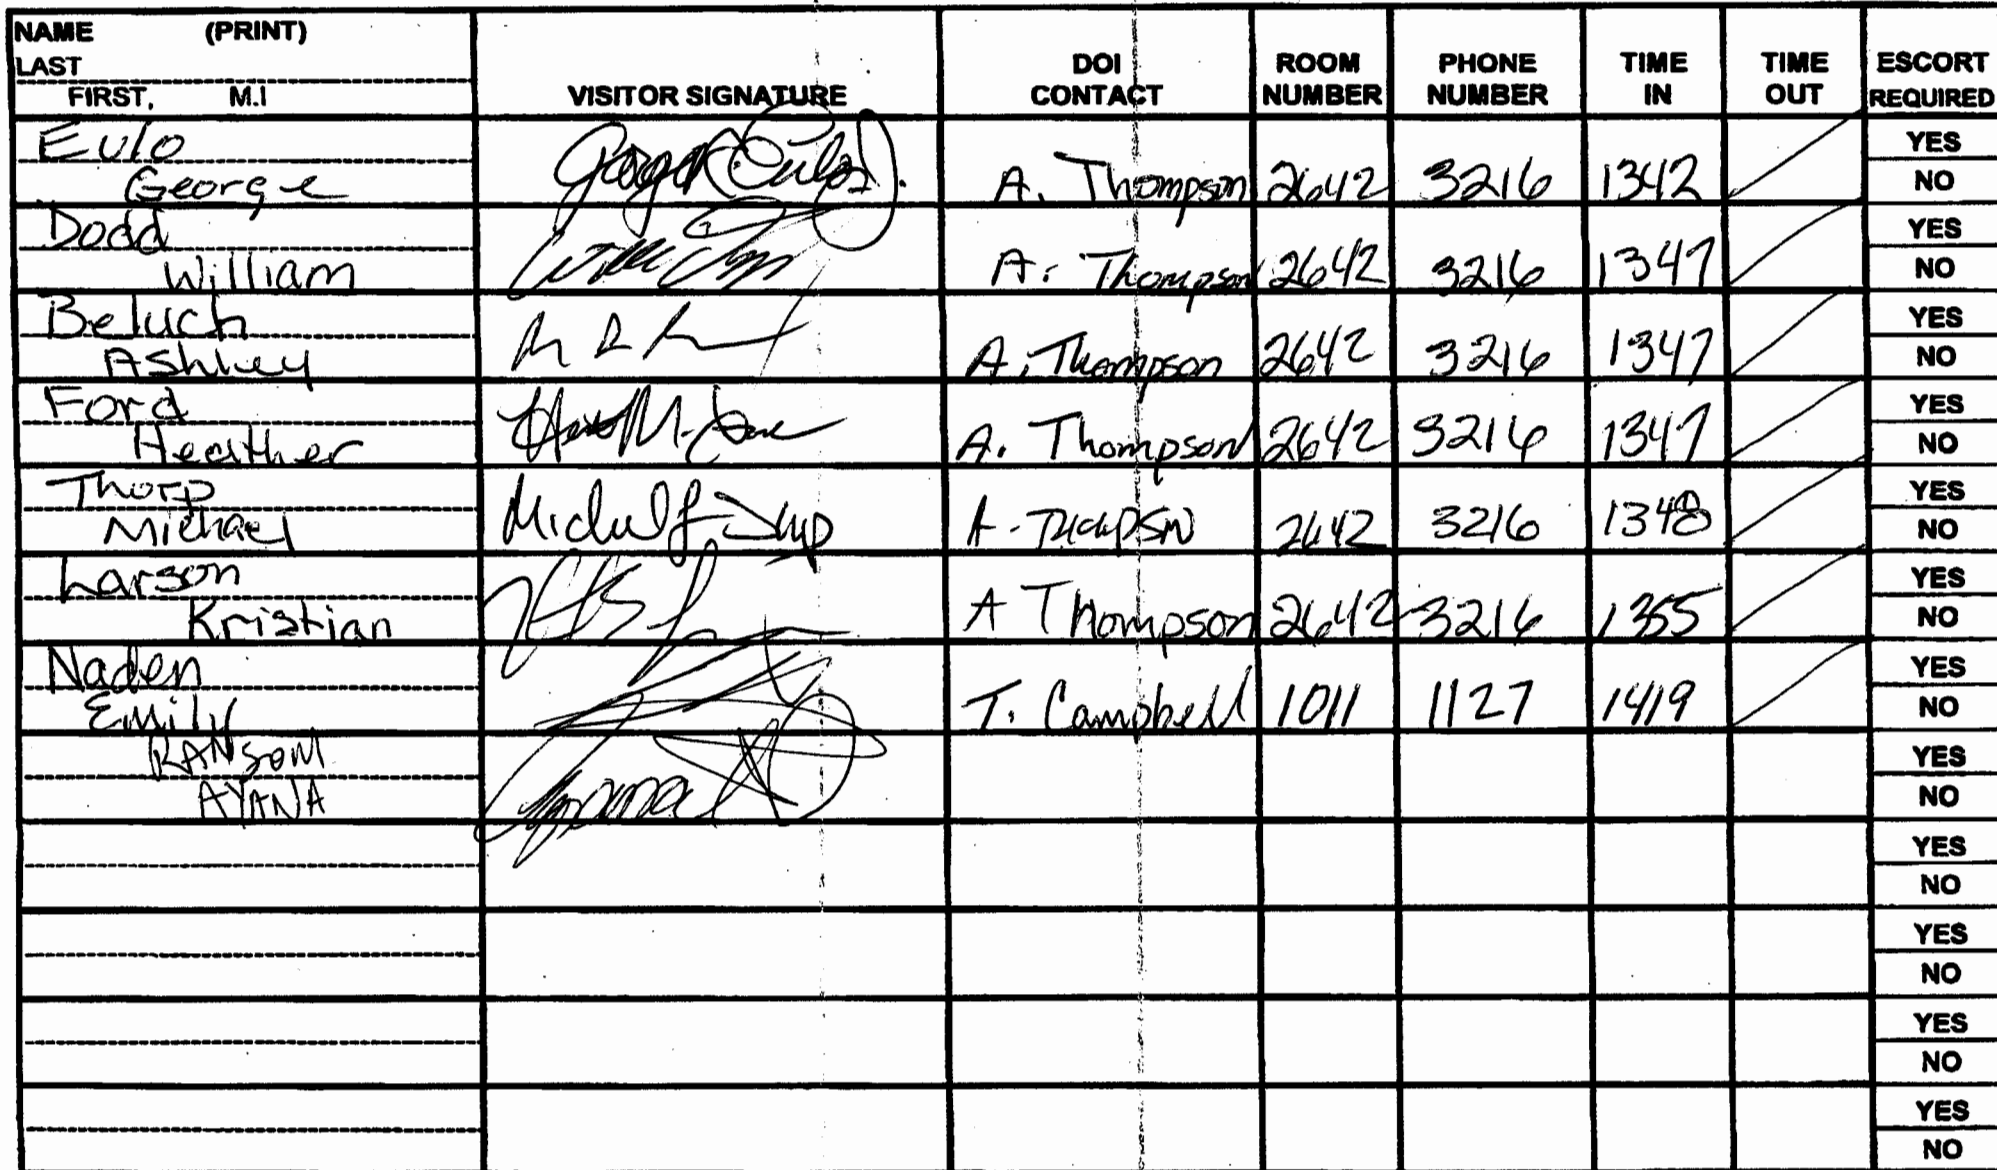 NAME (PRINT)
LAST
FIRST, M.I
VISITOR SIGNATURE
DOI CONTACT
ROOM NUMBER
PHONE NUMBER
TIME IN
TIME OUT
ESCORT REQUIRED
Eulo
George
A. Thompson 2642 3216 1342
YES
NO
Dodd
William
A. Thompson 2642 3216 1347
YES
NO
Beluch
Ashley
A. Thompson 2642 3216 1347
YES
NO
Ford
Heather
A. Thompson 2642 3216 1347
YES
NO
Thorp
Michael
A. 2642 3216 1348
YES
NO
Larson
Kristian
A Thompson 2642 3216 1355
YES
NO
Naden
Emily
T. Campbell 1011 1127 1419
YES
NO
RANSOM
AYANA
YES
NO
YES
NO
YES
NO
YES
NO
YES
NO